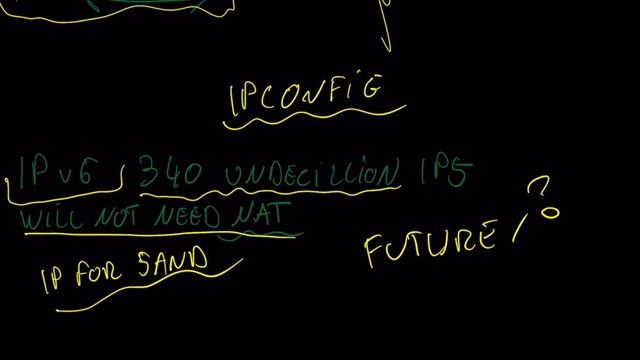 IPCONFIG
IPv6 340 UNDECILLION IPS
WILL NOT NEED NAT
IP FOR SAND
FUTURE ?